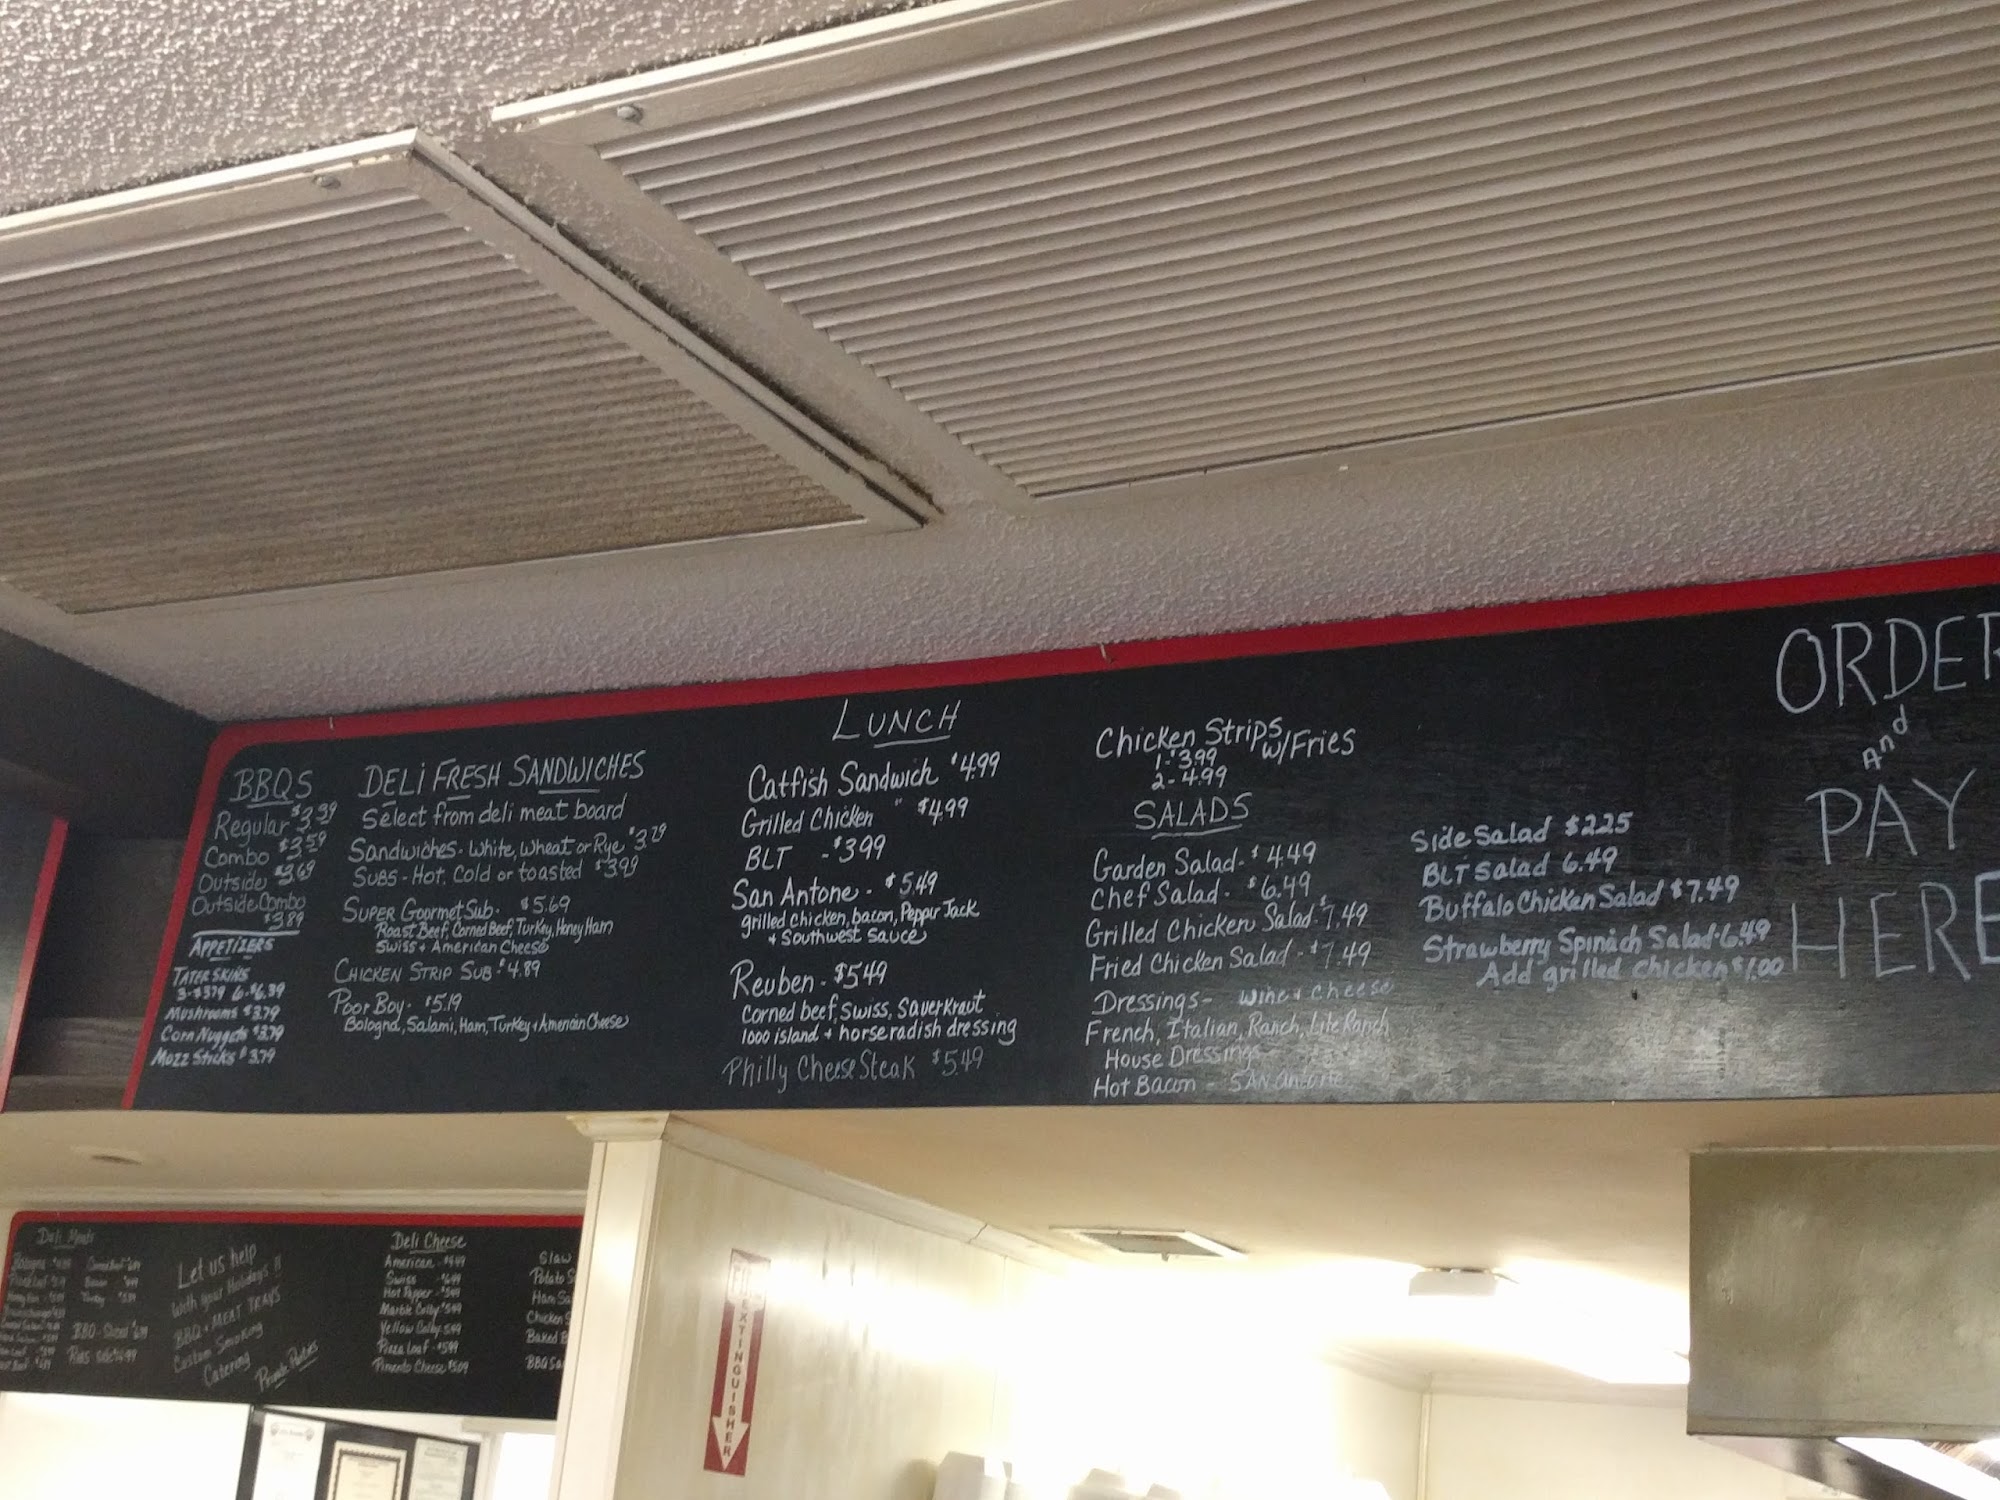 BBQS
Regular $3.39
Combo $3.59
Outside $3.69
Outside Combo
$3.89
APPETIZERS
TATER SKINS
3-$3.79 6-$6.39
Mushrooms $3.79
Corn Nuggets $3.79
Mozz Sticks $3.79
DELI FRESH SANDWICHES
Select from deli meat board
Sandwiches - White, Wheat or Rye $3.29
SUBS - Hot, Cold or toasted $3.99
SUPER Goormet Sub - $5.69
Roast Beef, Corned Beef, Turkey, Honey Ham
Swiss + American Cheese
CHICKEN STRIP SUB - $4.89
Poor Boy - $5.19
Bologna, Salami, Ham, Turkey + American Cheese
LUNCH
Catfish Sandwich $4.99
Grilled Chicken " $4.99
BLT - $3.99
San Antone - $5.49
grilled chicken, bacon, Pepper Jack
+ Southwest Sauce
Reuben - $5.49
Corned beef, Swiss, Sauerkraut
1000 island + horseradish dressing
Philly Cheese Steak $5.49
Chicken Strips w/Fries
1-$3.99
2-4.99
SALADS
Garden Salad - $4.49
Chef Salad - $6.49
Grilled Chicken Salad - $7.49
Fried Chicken Salad - $7.49
Dressings - Wine + Cheese
French, Italian, Ranch, Lite Ranch
House Dressing
Hot Bacon - SAN Antone
Side Salad $2.25
BLT Salad 6.49
Buffalo Chicken Salad $7.49
Strawberry Spinach Salad - 6.49
Add grilled chicken $1.00
ORDER
And
PAY
HERE
Deli Meats
BBQ - Sliced
Ribs
Let us help
With your Holidays!!
BBQ + MEAT TRAYS
Custom Smoking
Catering
Private Parties
Deli Cheese
American
Swiss
Hot Pepper
Marble Colby
Yellow Colby
Pizza Loaf
Pimento Cheese
Slaw
Potato S
Ham Sa
Chicken S
Baked B
BBQ Sa
EXTINGUISHER